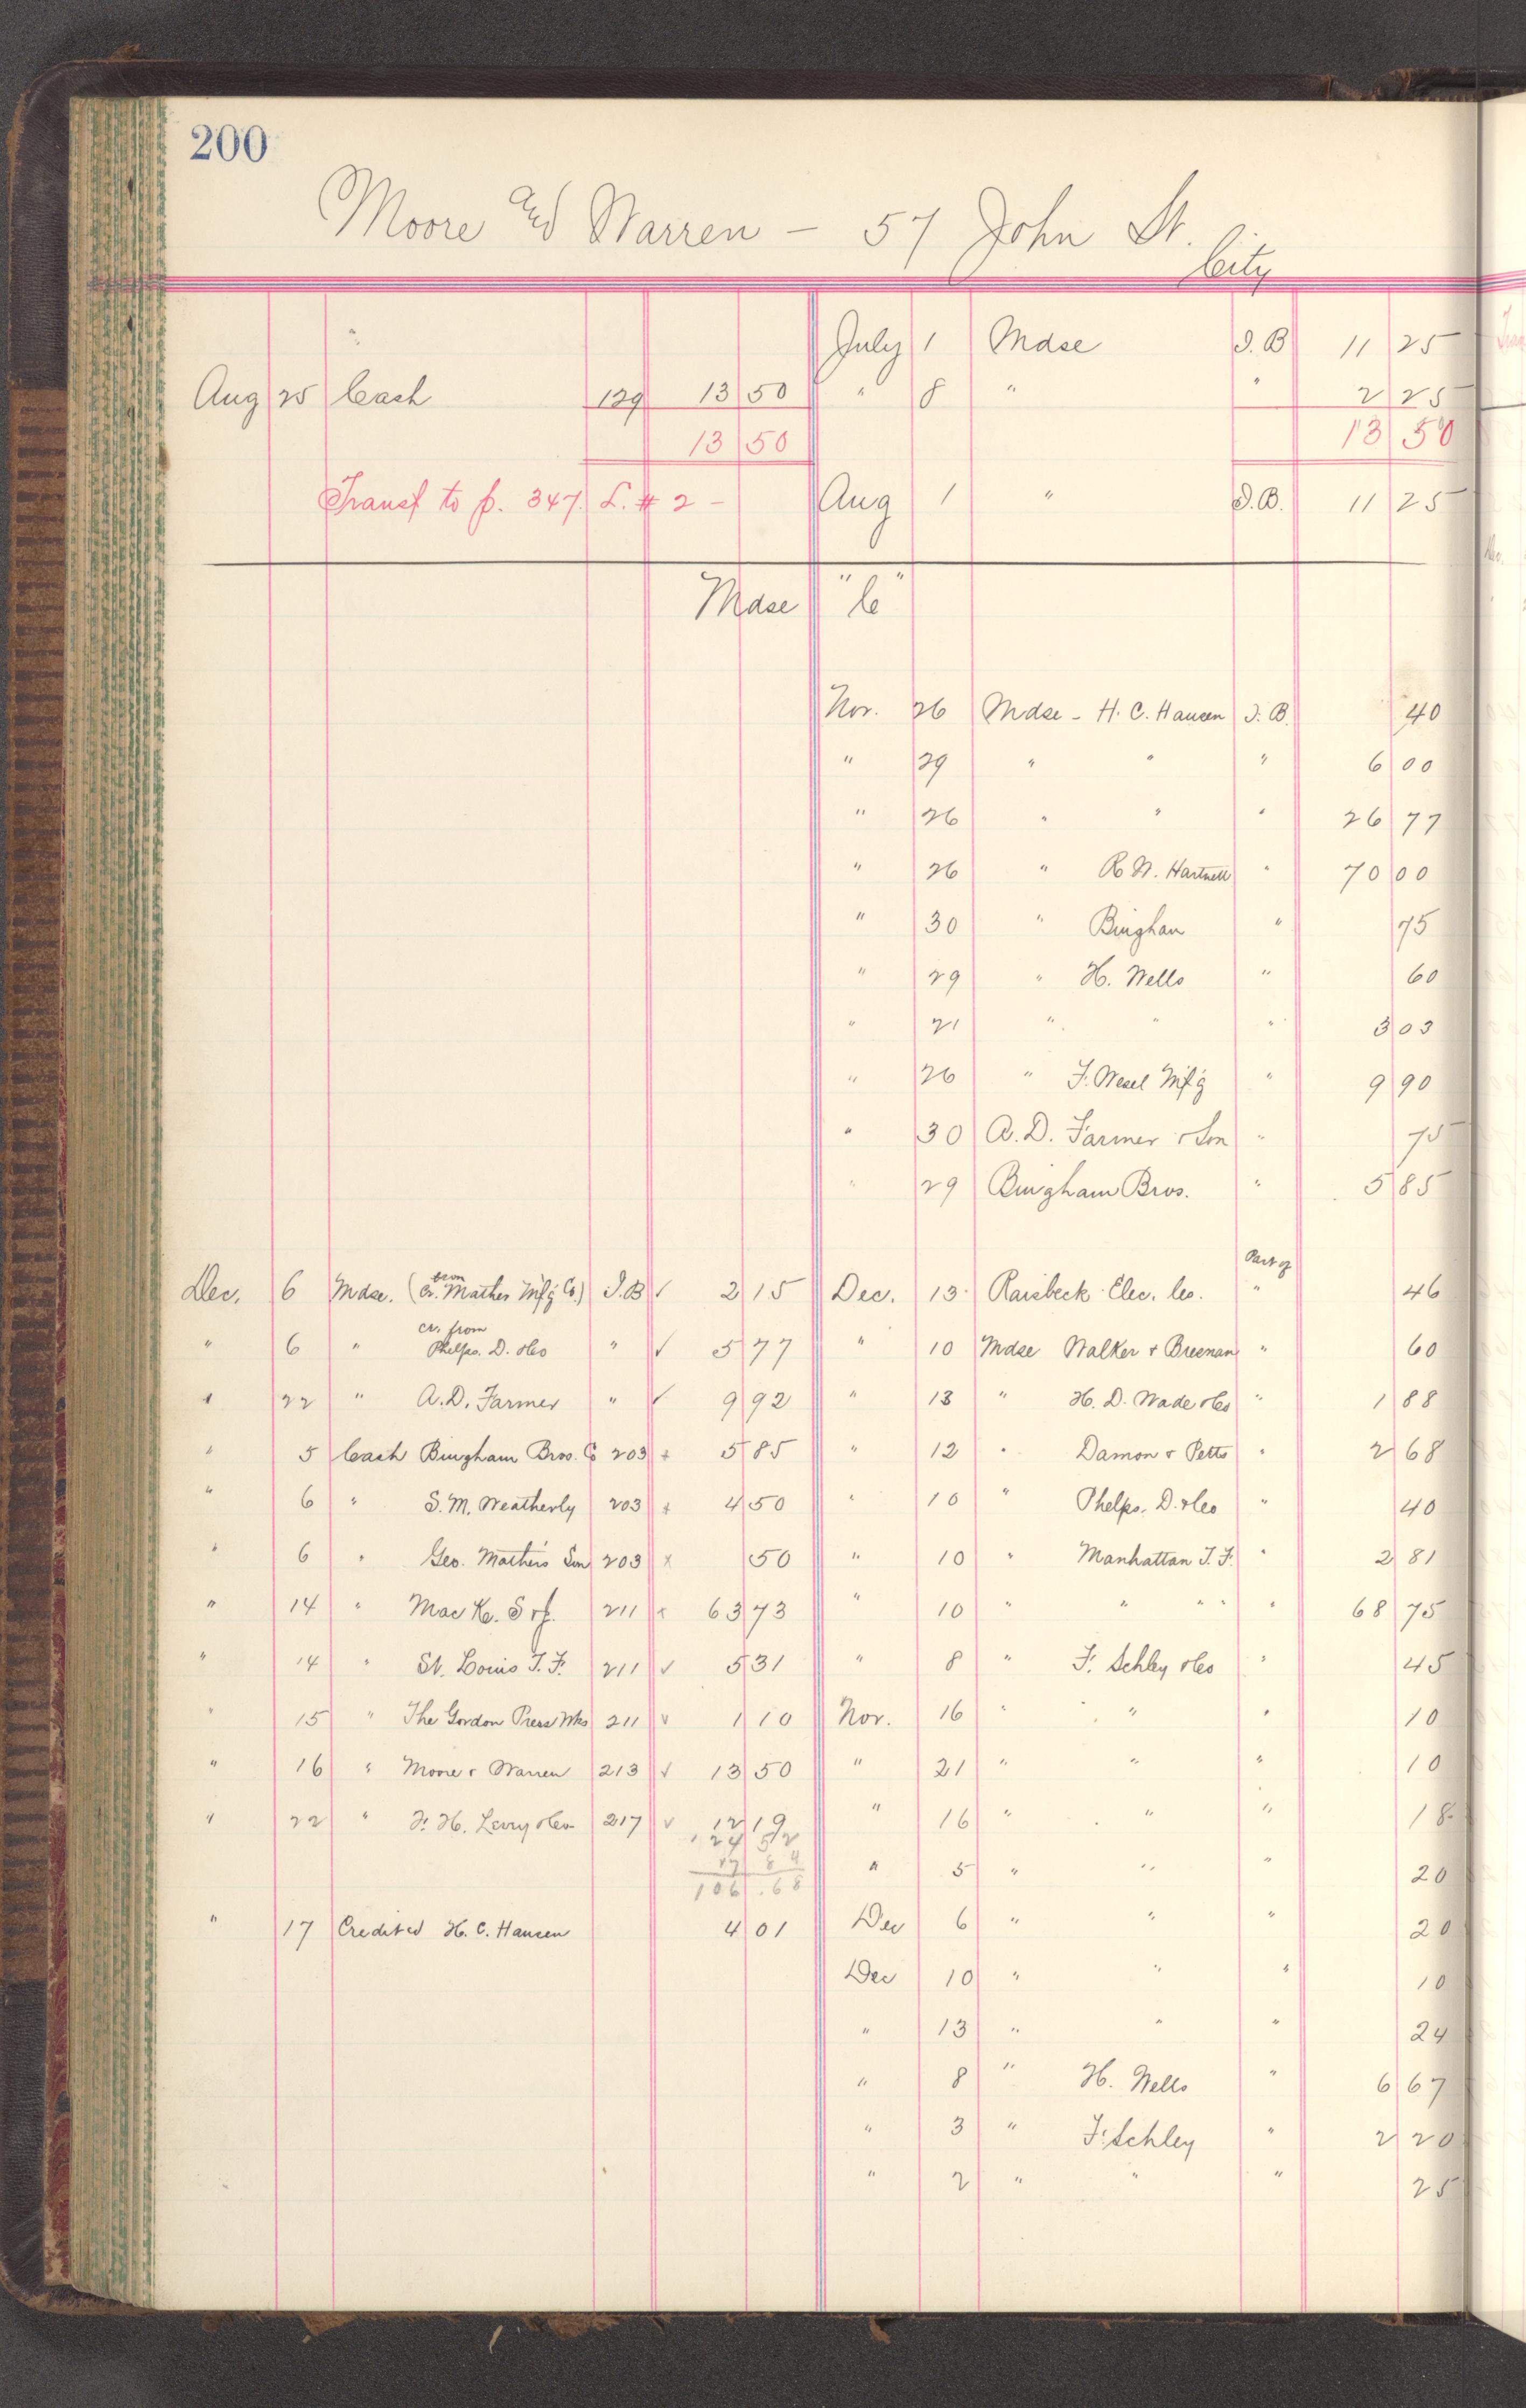 200
Moore and Warren — 57 John St.
City
July 1 Mdse I.B 11 25
Aug 25 Cash 129 13 50 " 8 " " 2 25
13 50 13 50
Transf to p. 347. L. # 2 — Aug 1 " I.B. 11 25
Mdse "C"
Nov. 26 Mdse - H. C. Hansen I.B. 40
" 29 " " " 6 00
" 26 " " " 26 77
" 26 " R. W. Hartnett " 70 00
" 30 " Bingham " 75
" 29 " H. Wells " 60
" 21 " " " 3 03
" 26 " F. Wesel Mf'g " 9 90
" 30 A. D. Farmer & Son " 75
" 29 Bingham Bros. " 5 85
Part of
Dec. 6 Mdse. (Cr. from Mather Mf'g Co.) I.B ✓ 2 15 Dec. 13 Raisbeck Elec. Co. " 46
" 6 " cr. from Phelps. D. & Co " ✓ 5 77 " 10 Mdse Walker & Bresnan " 60
" 22 " A. D. Farmer " ✓ 9 92 " 13 " H. D. Wade & Co " 1 88
" 5 Cash Bingham Bros. Co 203 x 5 85 " 12 " Damon & Petts " 2 68
" 6 " S. M. Weatherly 203 x 4 50 " 10 " Phelps. D. & Co " 40
" 6 " Geo. Mather's Son 203 x 50 " 10 " Manhattan T. F. " 2 81
" 14 " Mac K. S & J. 211 x 63 73 " 10 " " " " " 68 75
" 14 " St. Louis T. F. 211 ✓ 5 31 " 8 " F. Schley & Co " 45
" 15 " The Gordon Press Wks 211 ✓ 1 10 Nov. 16 " " " 10
" 16 " Moore & Warren 213 ✓ 13 50 " 21 " " " 10
" 22 " F. H. Levey & Co 217 ✓ 12 19 " 16 " " " 18
124 52
17 84 " 5 " " " 20
106.68
" 17 Credited H. C. Hansen 4 01 Dec 6 " " " 20
Dec 10 " " " 10
" 13 " " " 24
" 8 " H. Wells " 6 67
" 3 " F. Schley " 2 20
" 2 " " " 25